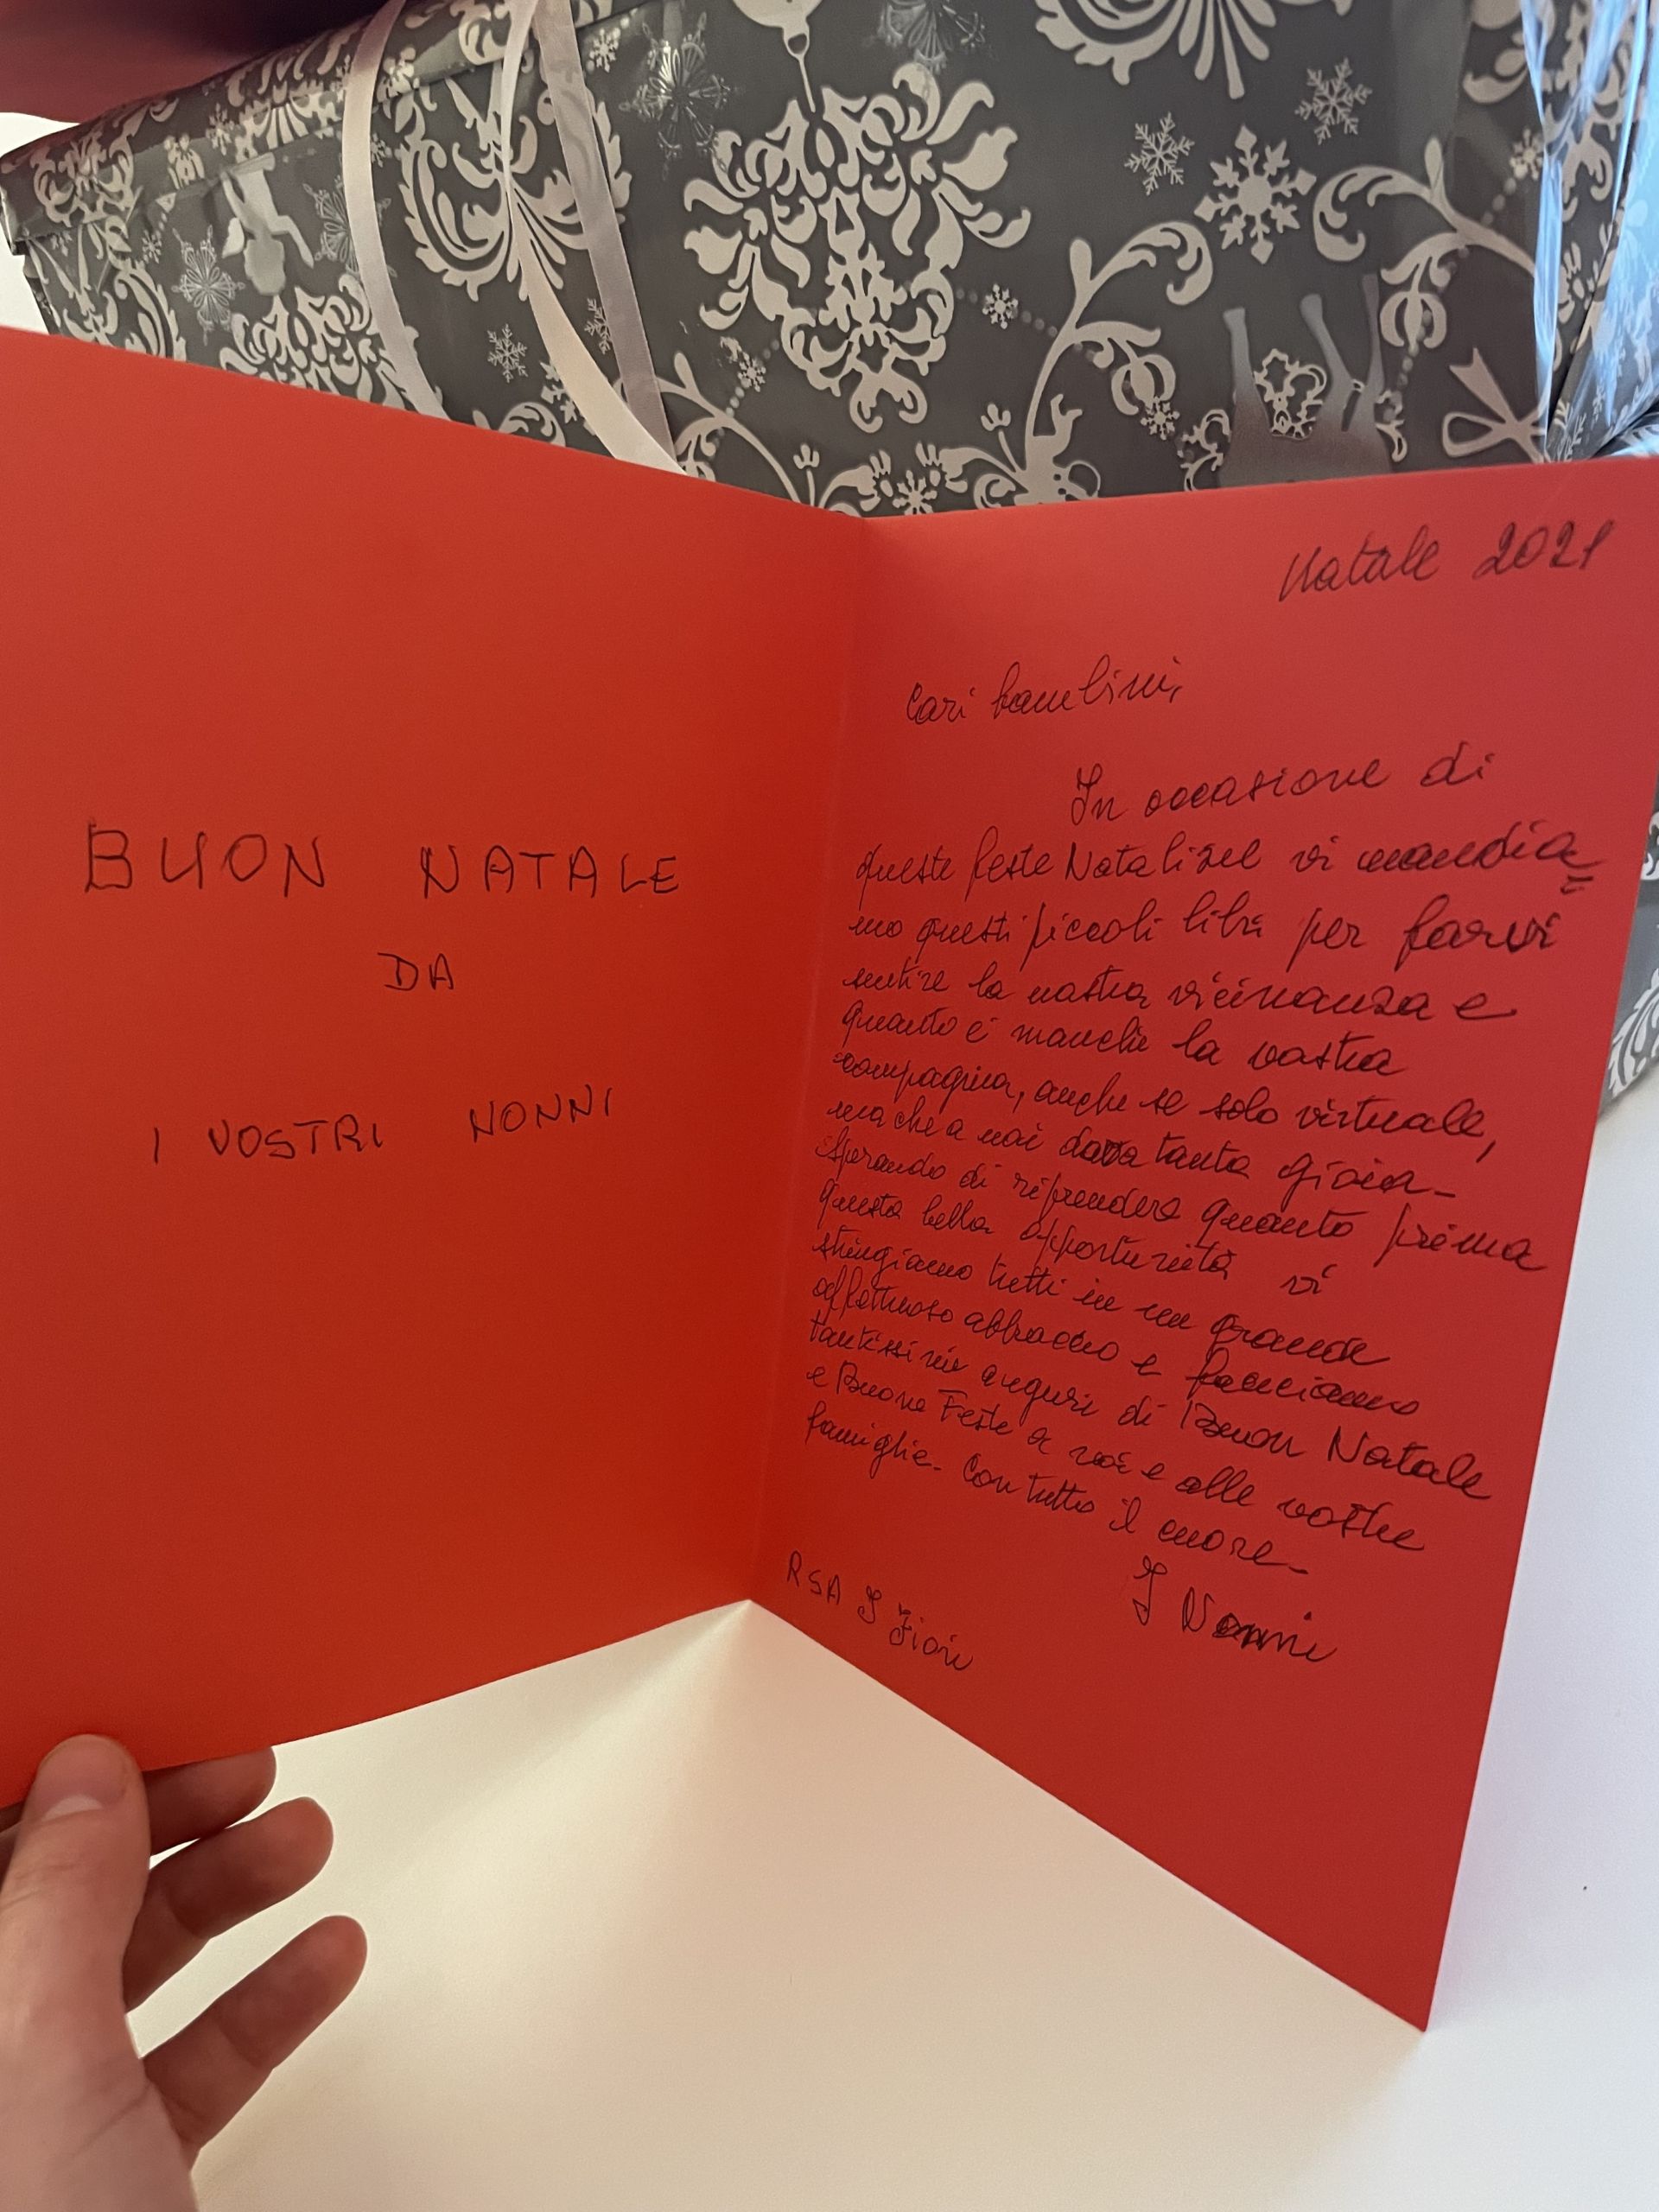 BUON NATALE
DA
I VOSTRI NONNI
Natale 2021
Cari bambini,
In occasione di
queste feste Natalizie vi mandia=
mo questi piccoli libri per farvi
sentire la nostra vicinanza e
quanto ci manchi la vostra
compagnia, anche se solo virtuale,
ma che a noi dava tanta gioia-
Sperando di riprendere quanto prima
questa bella opportunità vi
stringiamo tutti in un grande
affettuoso abbraccio e facciamo
tantissimi auguri di Buon Natale
e Buone Feste a voi e alle vostre
famiglie- Con tutto il cuore-
I Nonni
RSA I Fiori